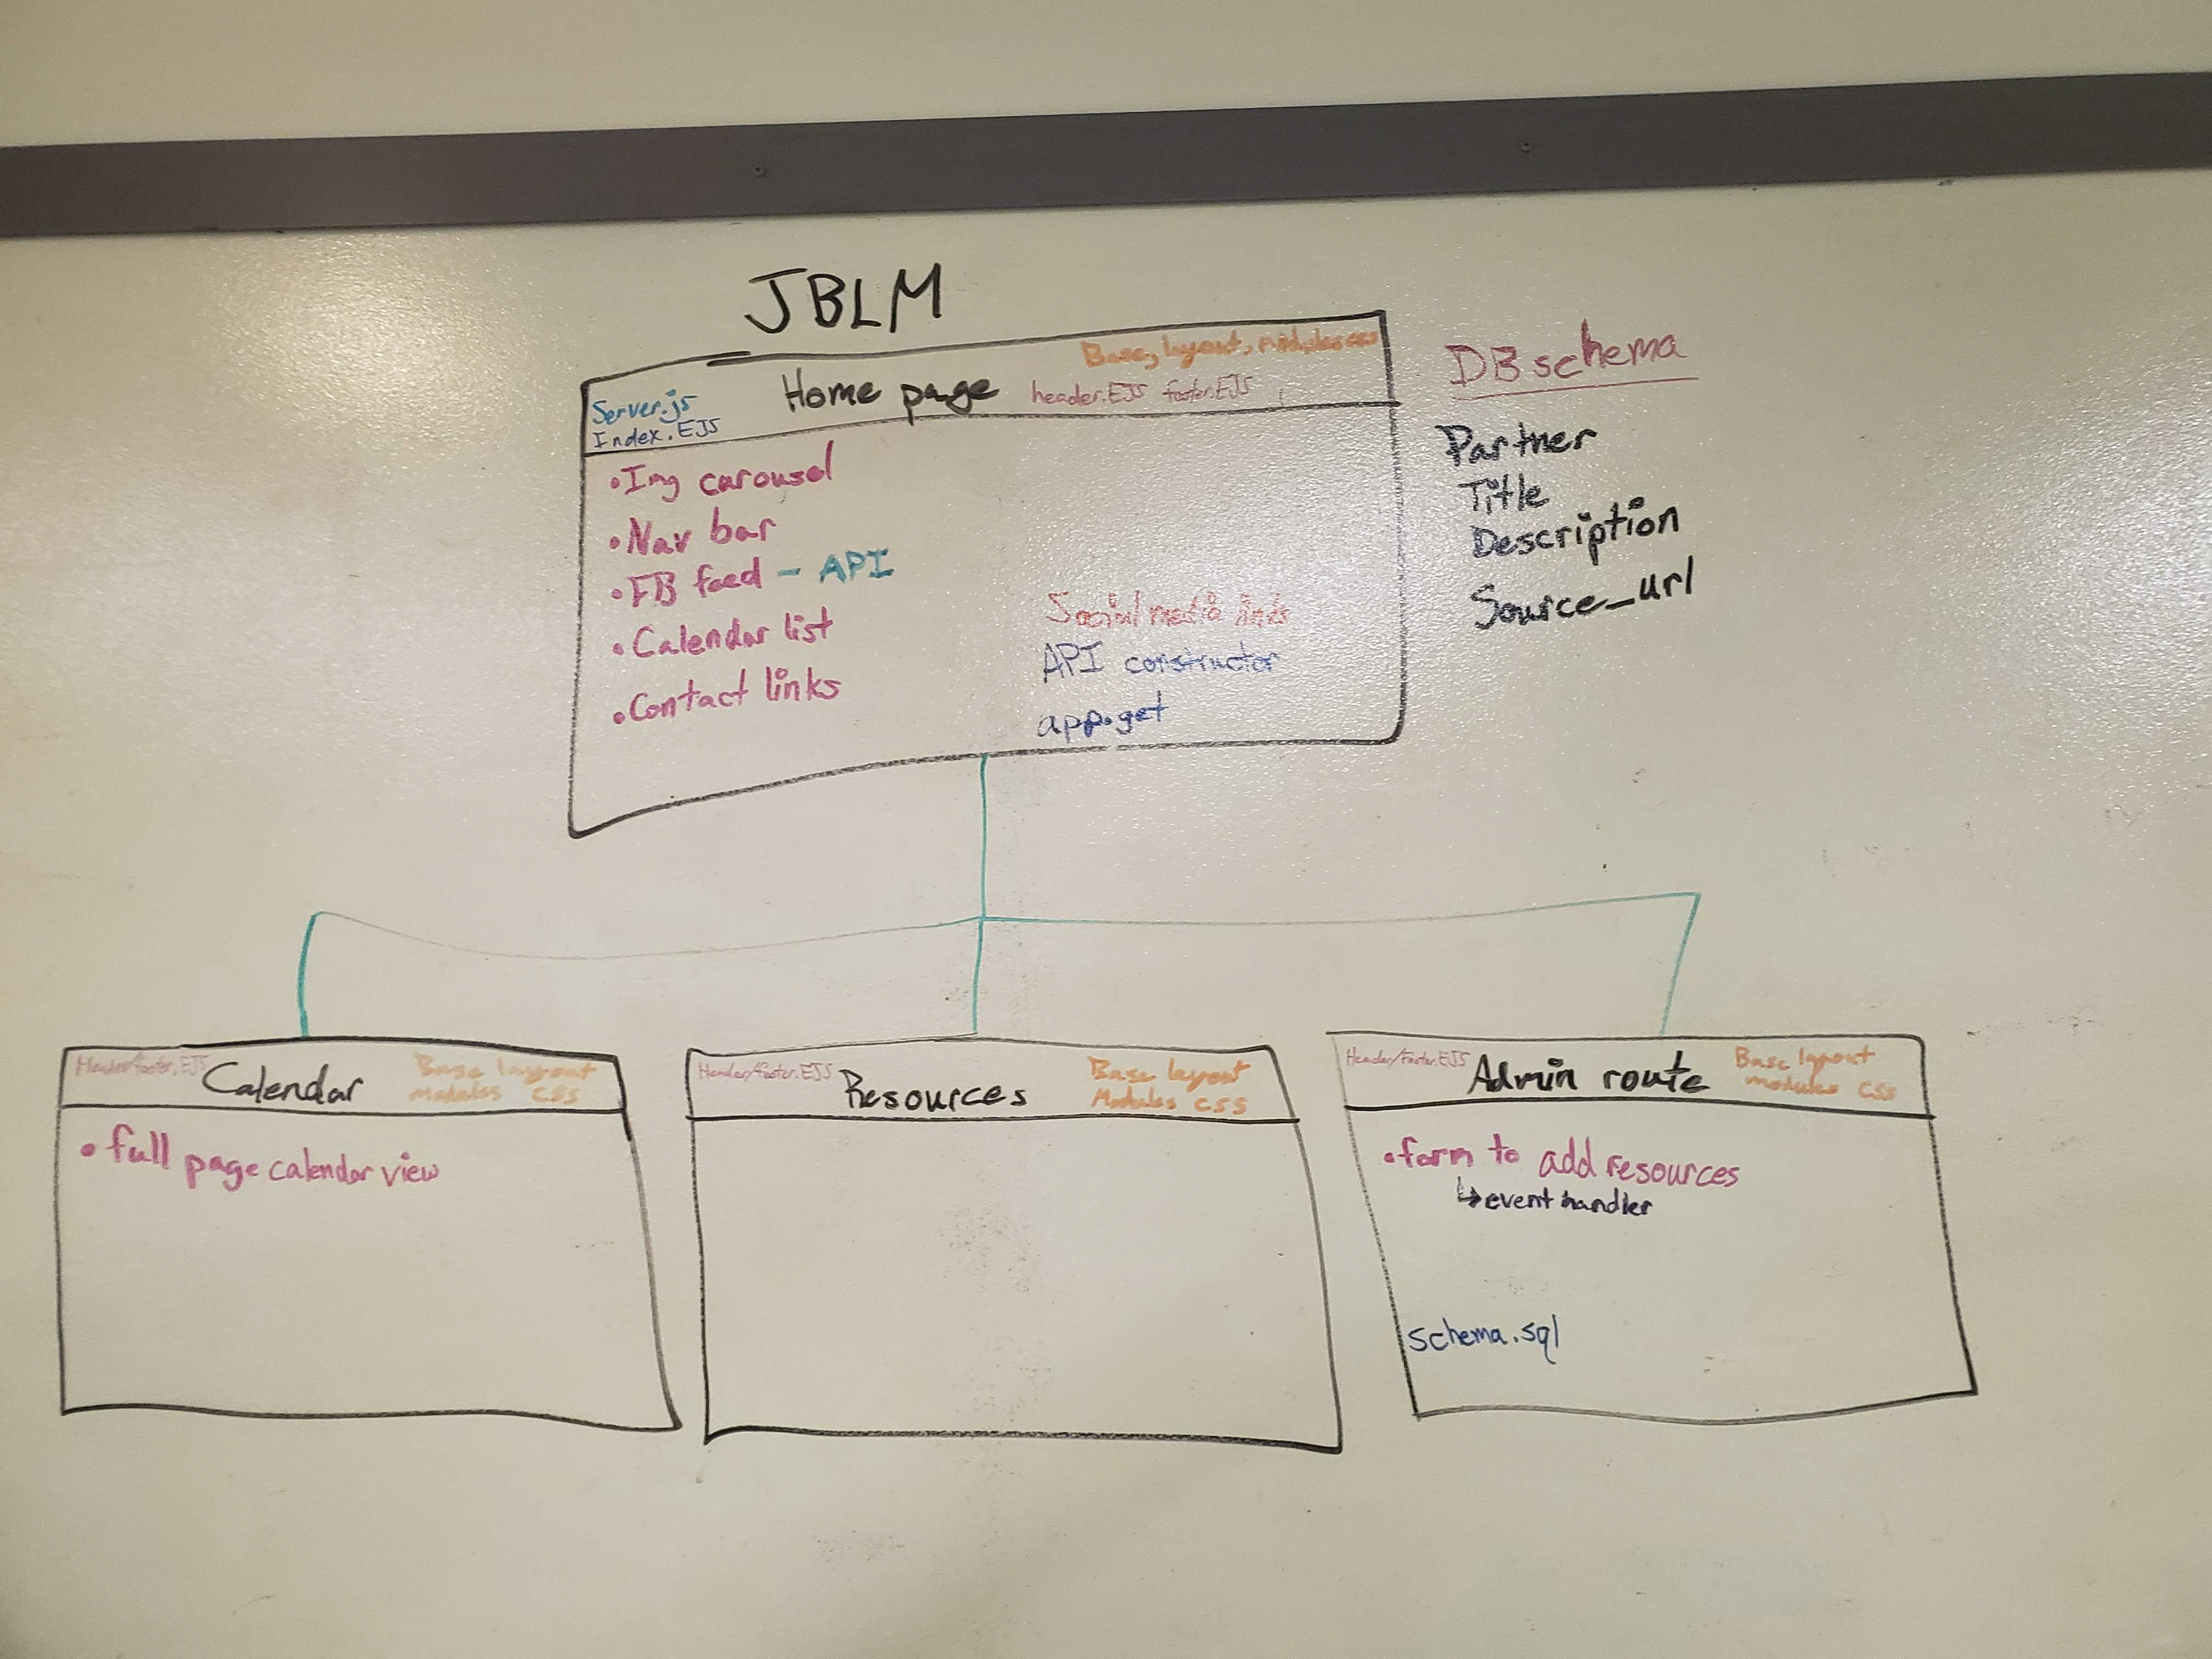 JBLM
Base, layout, modules css
Server.js
Home page
header.EJS footer.EJS
Index.EJS
•Img carousel
•Nav bar
•FB feed - API
•Calendar list
•Contact links
Social media links
API constructor
app.get
DB schema
Partner
Title
Description
Source_url
Header/footer.EJS
Calendar
Base layout
modules css
•full page calendar view
Header/footer.EJS
Resources
Base layout
Modules css
Header/footer.EJS
Admin route
Base layout
modules css
•form to add resources
↳event handler
schema.sql